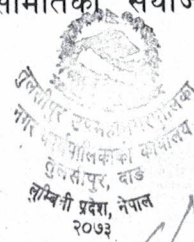 समितिको
तुलसीपुर उपमहानगरपालिका
नगर कार्यपालिकाको कार्यालय
तुलसीपुर, दाङ
लुम्बिनी प्रदेश, नेपाल
२०७३